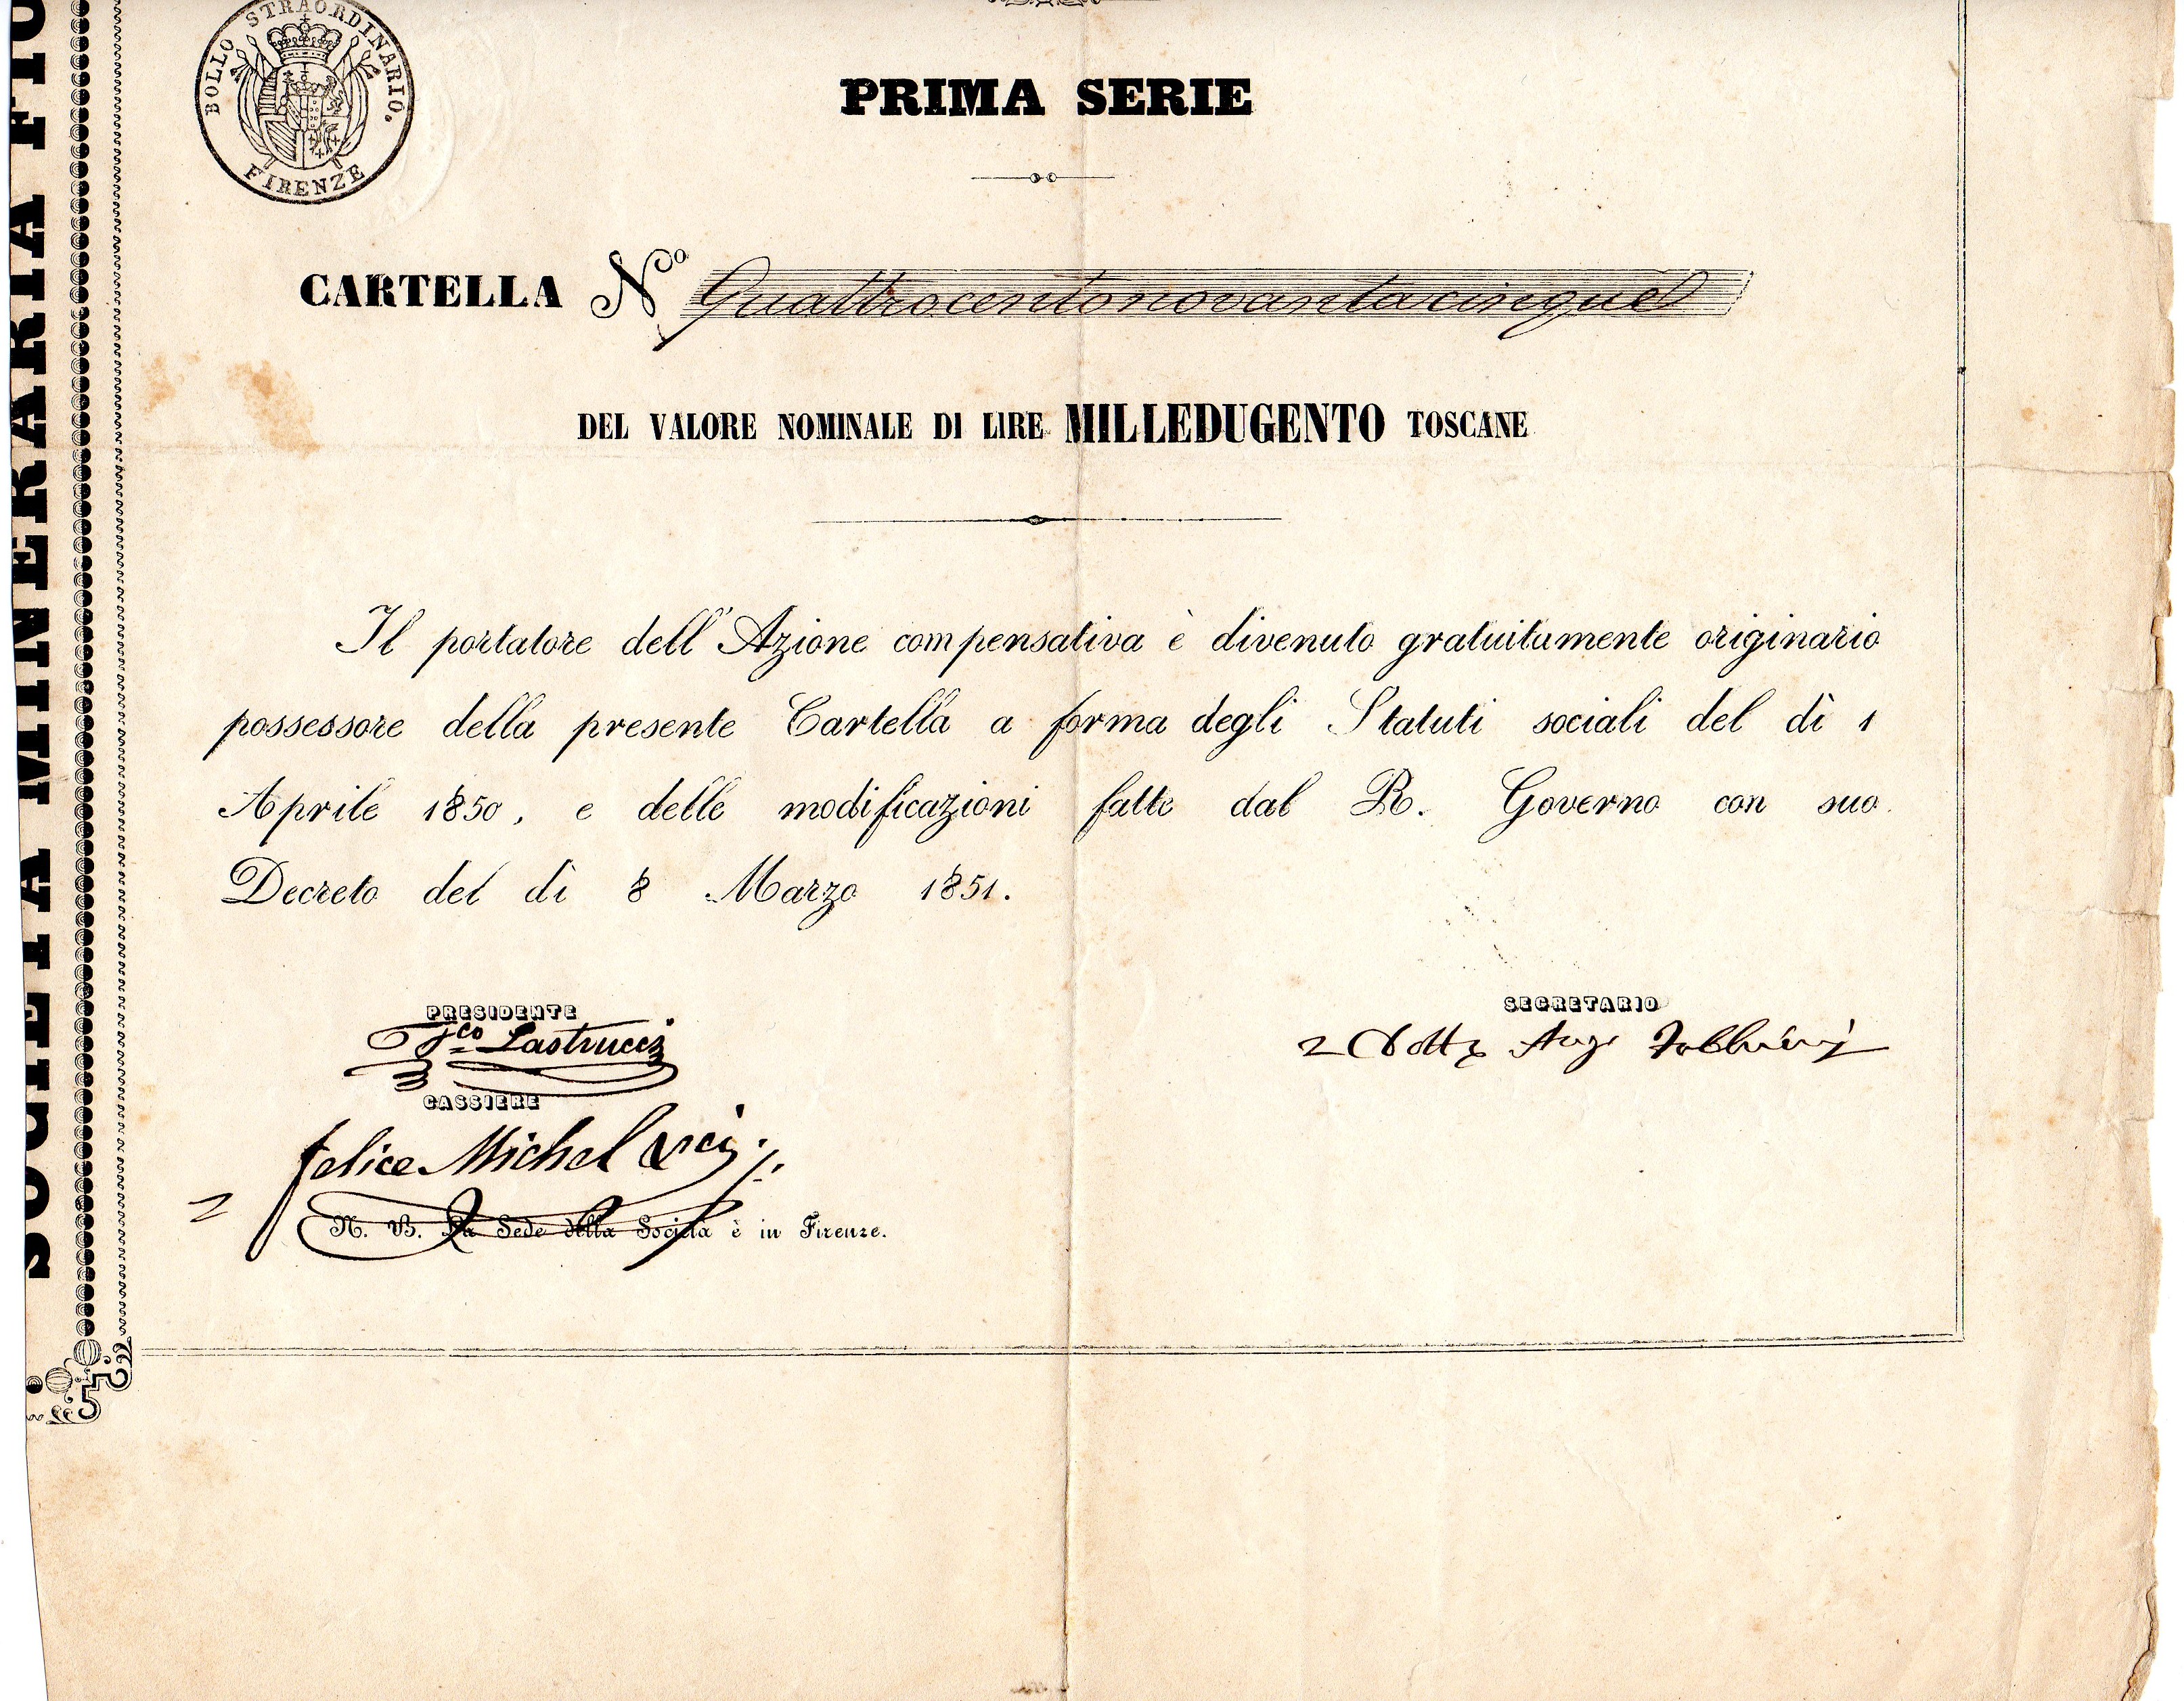 SOCIETA MINERARIA FIO
BOLLO STRAORDINARIO.
FIRENZE
PRIMA SERIE
CARTELLA Nº Quattrocentonovantacinque
DEL VALORE NOMINALE DI LIRE MILLEDUGENTO TOSCANE
Il portatore dell' Azione compensativa è divenuto gratuitamente originario
possessore della presente Cartella a forma degli Statuti sociali del dì 1
Aprile 1850, e delle modificazioni fatte dal R. Governo con suo
Decreto del dì 8 Marzo 1851.
PRESIDENTE
SEGRETARIO
Fco Lastrucci
CASSIERE
Felice Michel
N. B. La Sede della Società è in Firenze.